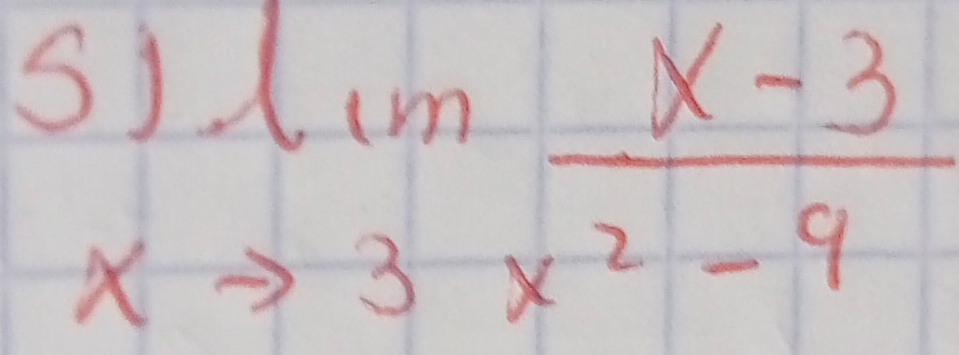 5) lim x - 3
x → 3 x² - 9